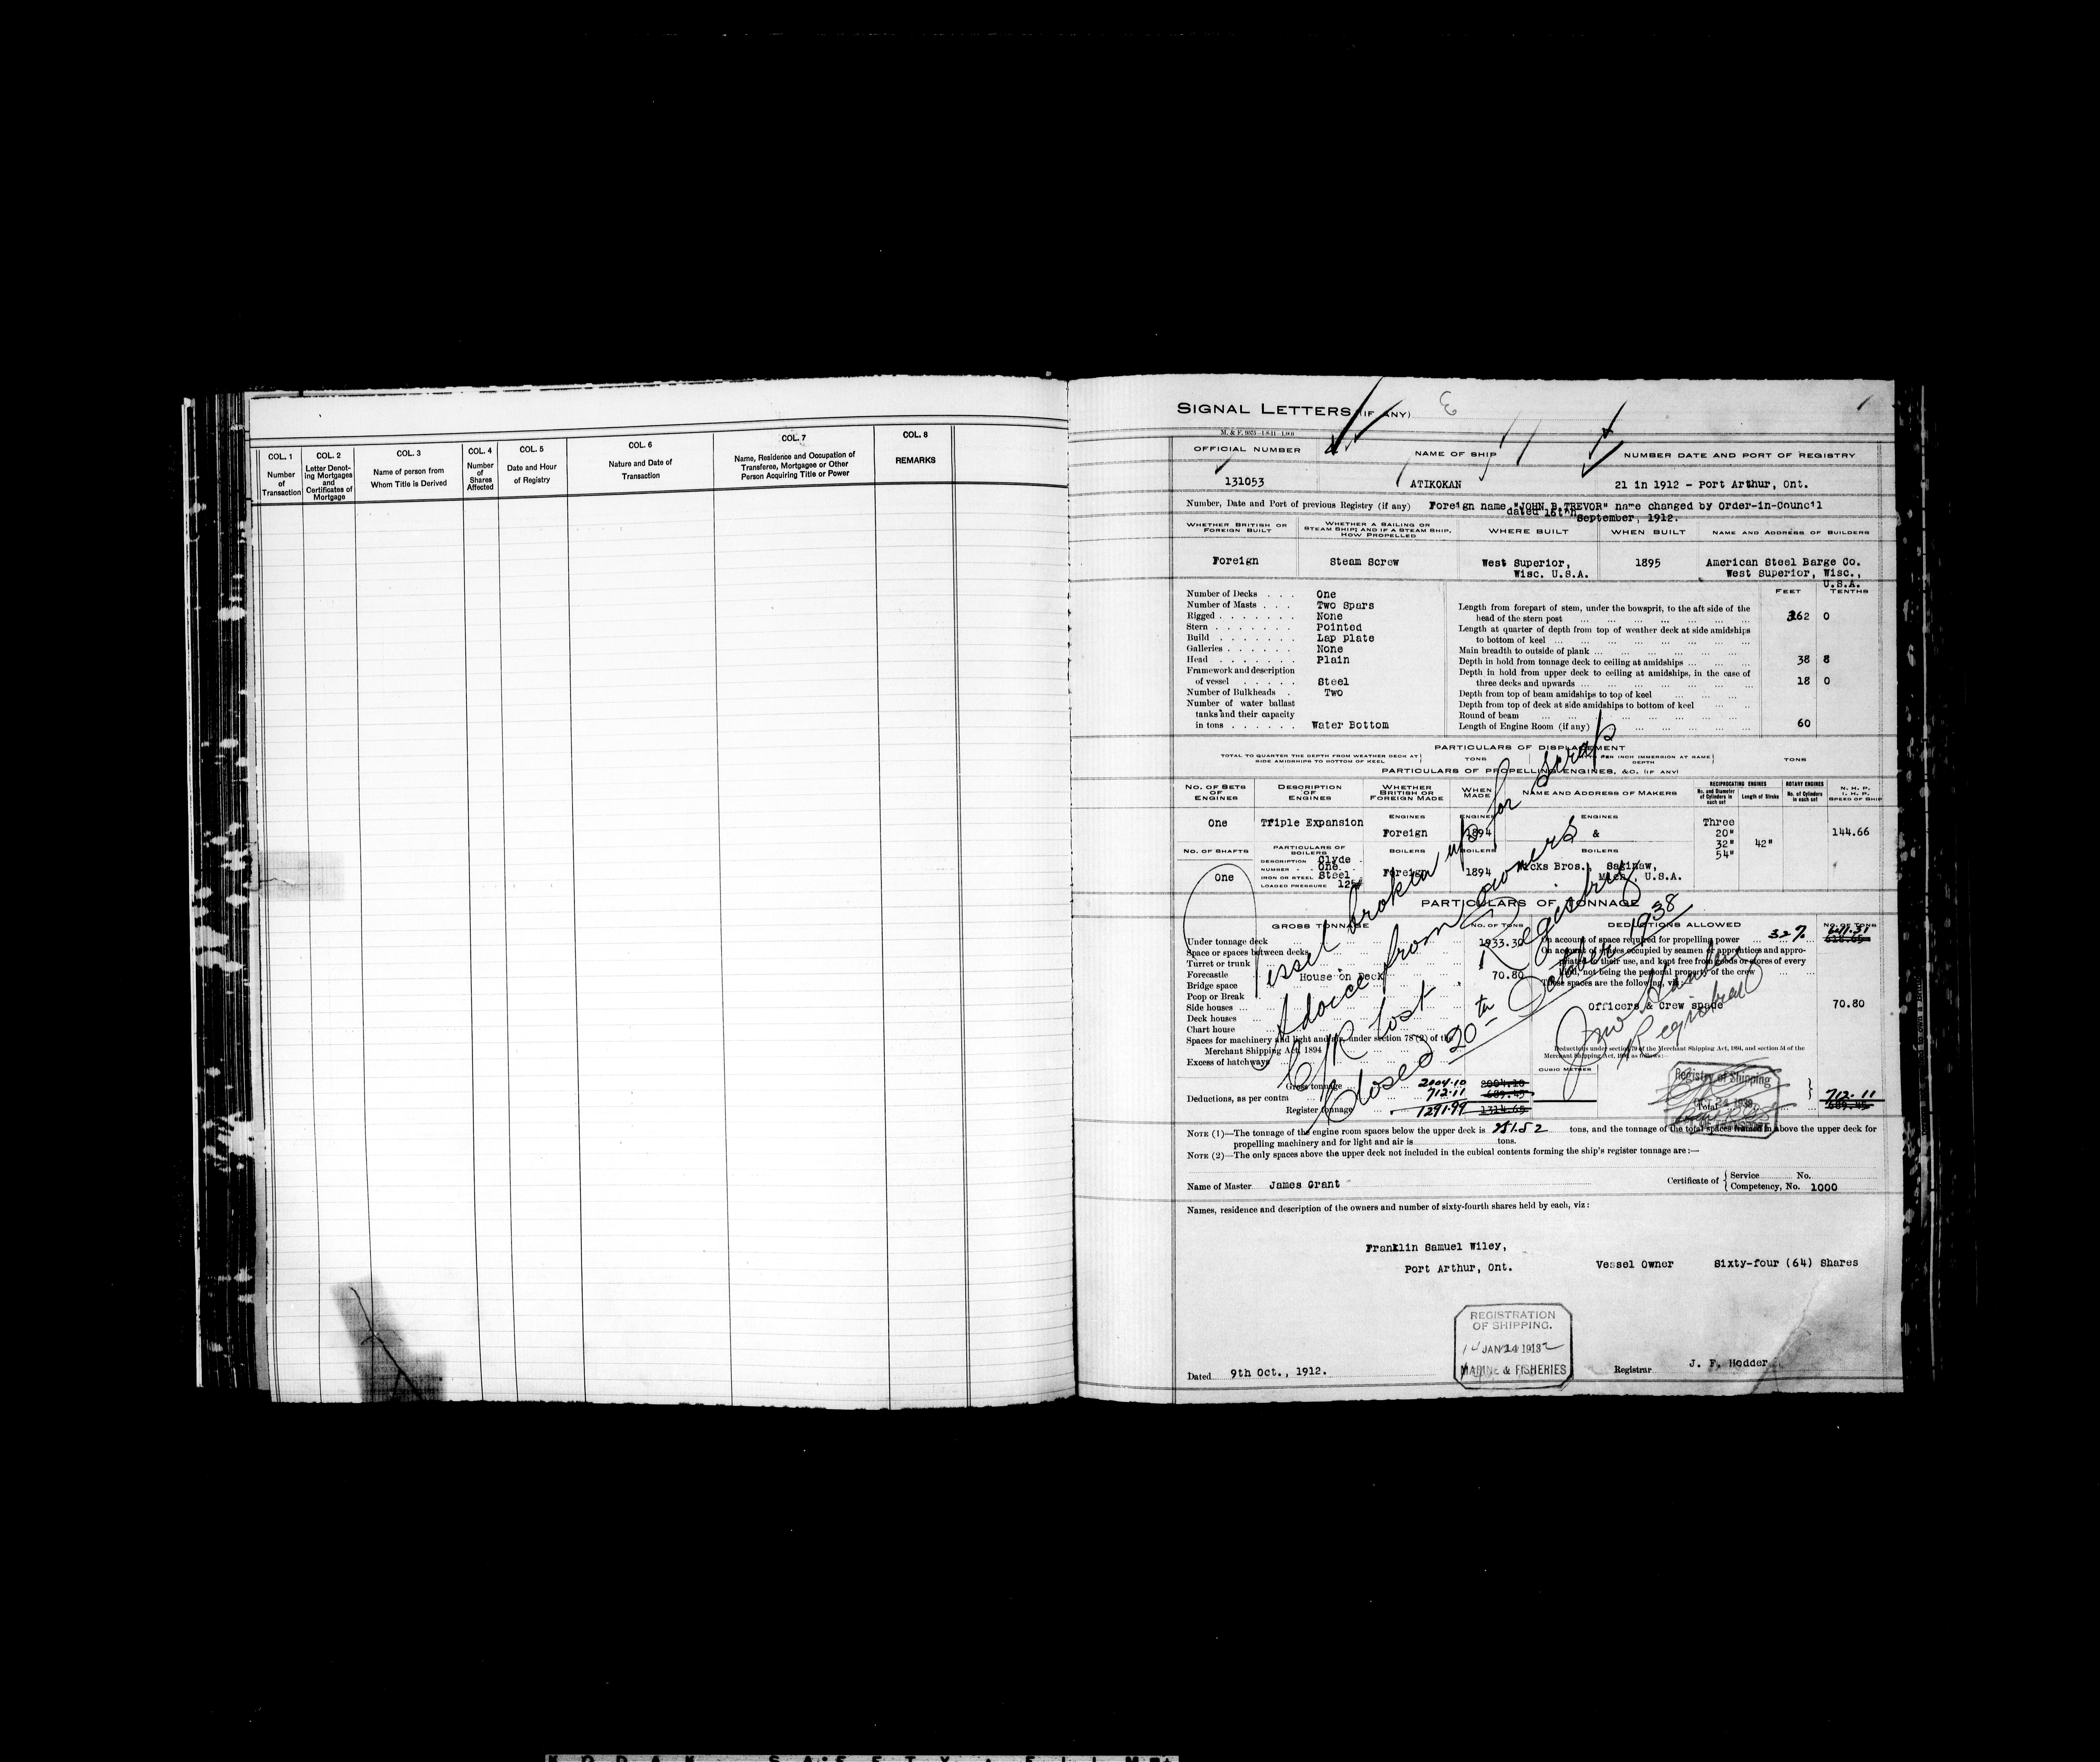 COL. 1
Number
of
Transaction
COL. 2
Letter Denot-
ing Mortgages
and
Certificates of
Mortgage
COL. 3
Name of person from
Whom Title is Derived
COL. 4
Number
of
Shares
Affected
COL. 5
Date and Hour
of Registry
COL. 6
Nature and Date of
Transaction
COL. 7
Name, Residence and Occupation of
Transferee, Mortgagee or Other
Person Acquiring Title or Power
COL. 8
REMARKS
SIGNAL LETTERS (IF ANY)
OFFICIAL NUMBER NAME OF SHIP NUMBER DATE AND PORT OF REGISTRY
131053 ATIKOKAN 21 in 1912 - Port Arthur, Ont.
Number, Date and Port of previous Registry (if any) Foreign name "JOHN B TREVOR" name changed by Order-in-Council
dated 16th September, 1912.
WHETHER BRITISH OR FOREIGN BUILT
WHETHER A SAILING OR STEAM SHIP; AND IF A STEAM SHIP, HOW PROPELLED
WHERE BUILT WHEN BUILT NAME AND ADDRESS OF BUILDERS
Foreign Steam Screw West Superior, 1895 American Steel Barge Co.
Wisc. U.S.A. West Superior, Wisc.,
U.S.A.
FEET TENTHS
Number of Decks . . . One
Number of Masts . . . Two Spars
Rigged . . . . . . . None
Stern . . . . . . . Pointed
Build . . . . . . . Lap plate
Galleries . . . . . . None
Head . . . . . . . Plain
Framework and description
of vessel . . . . . Steel
Number of Bulkheads . Two
Number of water ballast
tanks and their capacity
in tons . . . . . . Water Bottom
Length from forepart of stem, under the bowsprit, to the aft side of the
head of the stern post 362 0
Length at quarter of depth from top of weather deck at side amidships
to bottom of keel
Main breadth to outside of plank
Depth in hold from tonnage deck to ceiling at amidships 38 8
Depth in hold from upper deck to ceiling at amidships, in the case of
three decks and upwards 18 0
Depth from top of beam amidships to top of keel
Depth from top of deck at side amidships to bottom of keel
Round of beam
Length of Engine Room (if any) 60
PARTICULARS OF DISPLACEMENT
TOTAL TO QUARTER THE DEPTH FROM WEATHER DECK AT SIDE AMIDSHIPS TO BOTTOM OF KEEL TONS PER INCH IMMERSION AT SAME DEPTH TONS
PARTICULARS OF PROPELLING ENGINES, &C. (IF ANY)
NO. OF SETS OF ENGINES
DESCRIPTION OF ENGINES
WHETHER BRITISH OR FOREIGN MADE
WHEN MADE
NAME AND ADDRESS OF MAKERS
RECIPROCATING ENGINES
No. and Diameter of Cylinders in each set
Length of Stroke
ROTARY ENGINES
No. of Cylinders in each set
N. H. P.
I. H. P.
SPEED OF SHIP
ENGINES ENGINES ENGINES
One Triple Expansion Foreign 1894 & Three
20" 144.66
32" 42"
54"
NO. OF SHAFTS PARTICULARS OF BOILERS BOILERS BOILERS BOILERS
DESCRIPTION Clyde
NUMBER One
IRON OR STEEL Steel
LOADED PRESSURE 125#
One Foreign 1894 Wicks Bros., Saginaw,
Mich., U.S.A.
PARTICULARS OF TONNAGE
GROSS TONNAGE NO. OF TONS DEDUCTIONS ALLOWED NO. OF TONS
Under tonnage deck 1933.30
Space or spaces between decks
Turret or trunk
Forecastle House on Deck 70.80
Bridge space
Poop or Break
Side houses
Deck houses
Chart house
Spaces for machinery and light and air, under section 78 (2) of the
Merchant Shipping Act, 1894
Excess of hatchways
Gross tonnage 2004.10 2004.10
Deductions, as per contra 712.11 689.45
Register tonnage 1291.99 1314.65
On account of space required for propelling power 32% 641.31
On account of spaces occupied by seamen or apprentices and appro-
priated to their use, and kept free from goods or stores of every
kind, not being the personal property of the crew
These spaces are the following, viz
Officers & Crew space 70.80
Deductions under section 79 of the Merchant Shipping Act, 1894, and section 54 of the
Merchant Shipping Act, 1906, as follows:—
CUBIC METRES
Total 712.11 689.45
Registry of Shipping
Vessel broken up for Scrap
Advice from owners
C/R lost Registry
Closed 20th October 1938
Registrar
NOTE (1)—The tonnage of the engine room spaces below the upper deck is 251.52 tons, and the tonnage of the total spaces framed in above the upper deck for
propelling machinery and for light and air is tons.
NOTE (2)—The only spaces above the upper deck not included in the cubical contents forming the ship's register tonnage are:—
Name of Master James Grant
Certificate of Service No.
Competency, No. 1000
Names, residence and description of the owners and number of sixty-fourth shares held by each, viz:
Franklin Samuel Wiley,
Port Arthur, Ont. Vessel Owner Sixty-four (64) Shares
REGISTRATION
OF SHIPPING.
MARINE & FISHERIES
Dated 9th Oct., 1912. Registrar J. F. Hodder